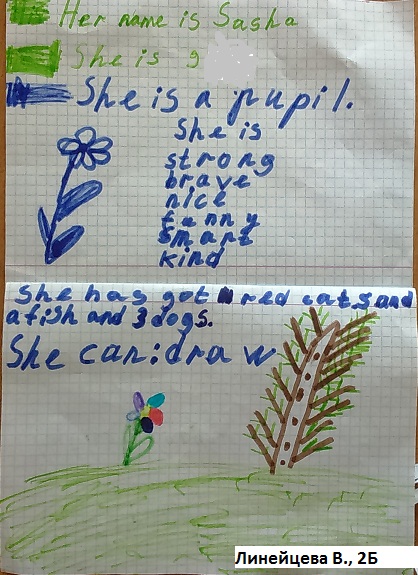 Her name is Sasha
She is 9
She is a pupil.
She is
strong
brave
nice
funny
smart
kind
She has got red cats and
a fish and 3 dogs.
She can: draw
Линейцева В., 2Б